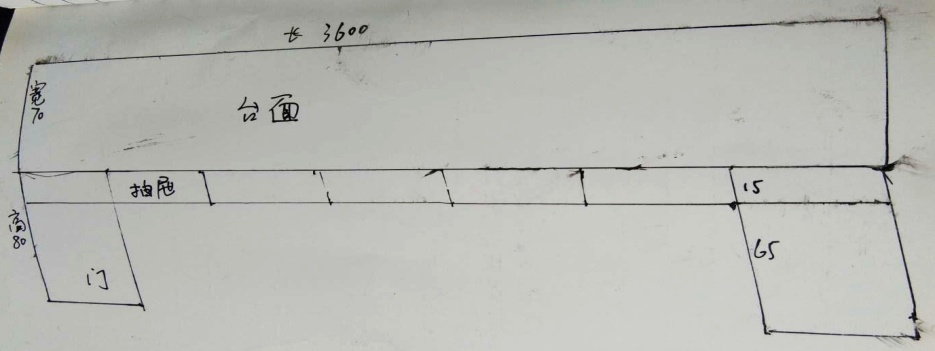 长 3600
宽70
台面
抽屉
15
高80
门
65